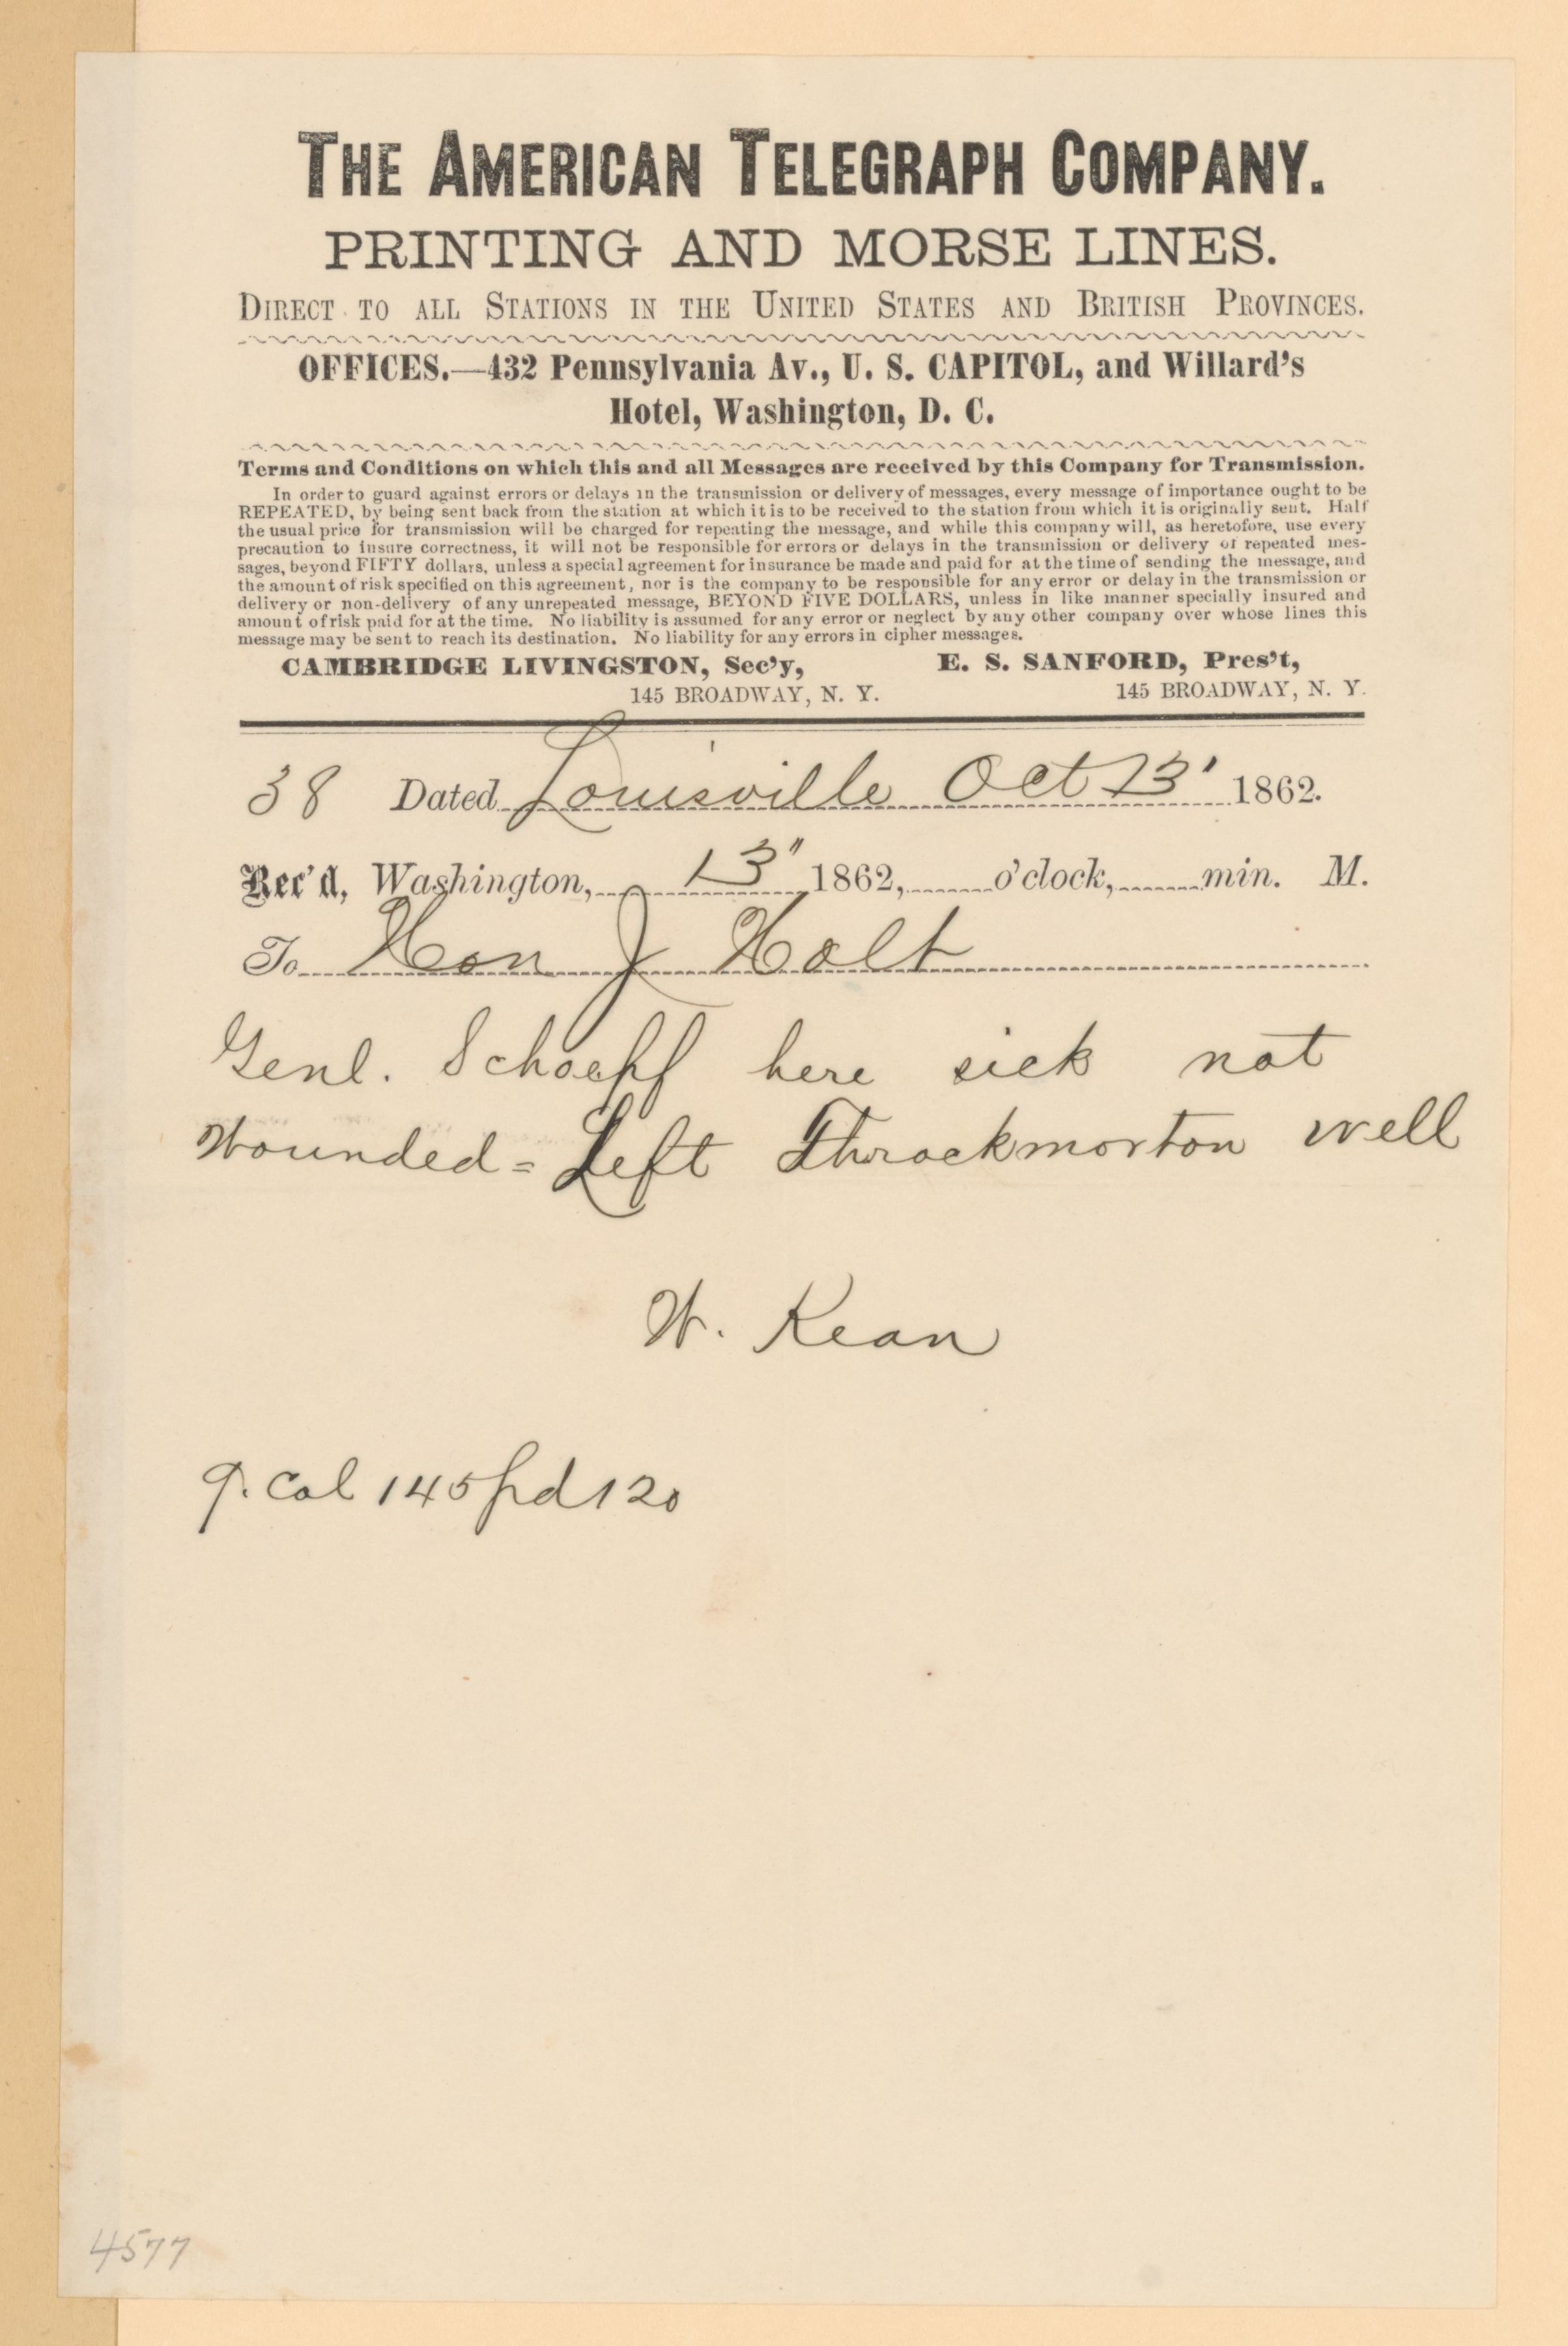 THE AMERICAN TELEGRAPH COMPANY.
PRINTING AND MORSE LINES.
DIRECT TO ALL STATIONS IN THE UNITED STATES AND BRITISH PROVINCES.
OFFICES.—432 Pennsylvania Av., U. S. CAPITOL, and Willard's
Hotel, Washington, D. C.
Terms and Conditions on which this and all Messages are received by this Company for Transmission.
In order to guard against errors or delays in the transmission or delivery of messages, every message of importance ought to be
REPEATED, by being sent back from the station at which it is to be received to the station from which it is originally sent. Half
the usual price for transmission will be charged for repeating the message, and while this company will, as heretofore, use every
precaution to insure correctness, it will not be responsible for errors or delays in the transmission or delivery of repeated mes-
sages, beyond FIFTY dollars, unless a special agreement for insurance be made and paid for at the time of sending the message, and
the amount of risk specified on this agreement, nor is the company to be responsible for any error or delay in the transmission or
delivery or non-delivery of any unrepeated message, BEYOND FIVE DOLLARS, unless in like manner specially insured and
amount of risk paid for at the time. No liability is assumed for any error or neglect by any other company over whose lines this
message may be sent to reach its destination. No liability for any errors in cipher messages.
CAMBRIDGE LIVINGSTON, Sec'y, E. S. SANFORD, Pres't,
145 BROADWAY, N. Y. 145 BROADWAY, N. Y.
38 Dated Louisville Oct 13' 1862.
Rec'd, Washington, 13" 1862, o'clock, min. M.
To Hon J Holt
Genl. Schoepf here sick not
wounded = Left Throckmorton well
W. Kean
9. Col 145 pd 120
4577